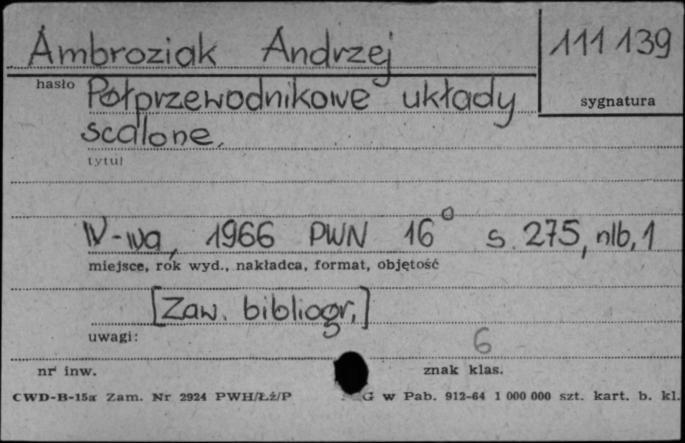 Ambroziak Andrzej 111 139
hasło
sygnatura
Półprzewodnikowe układy
scalone.
tytuł
W-wa, 1966 PWN 16° s. 275, nlb, 1
miejsce, rok wyd., nakładca, format, objętość
[Zaw. bibliogr.]
uwagi:
6
nr inw. znak klas.
CWD-B-15a Zam. Nr 2924 PWH/Łż/P G w Pab. 912-64 1 000 000 szt. kart. b. kl.